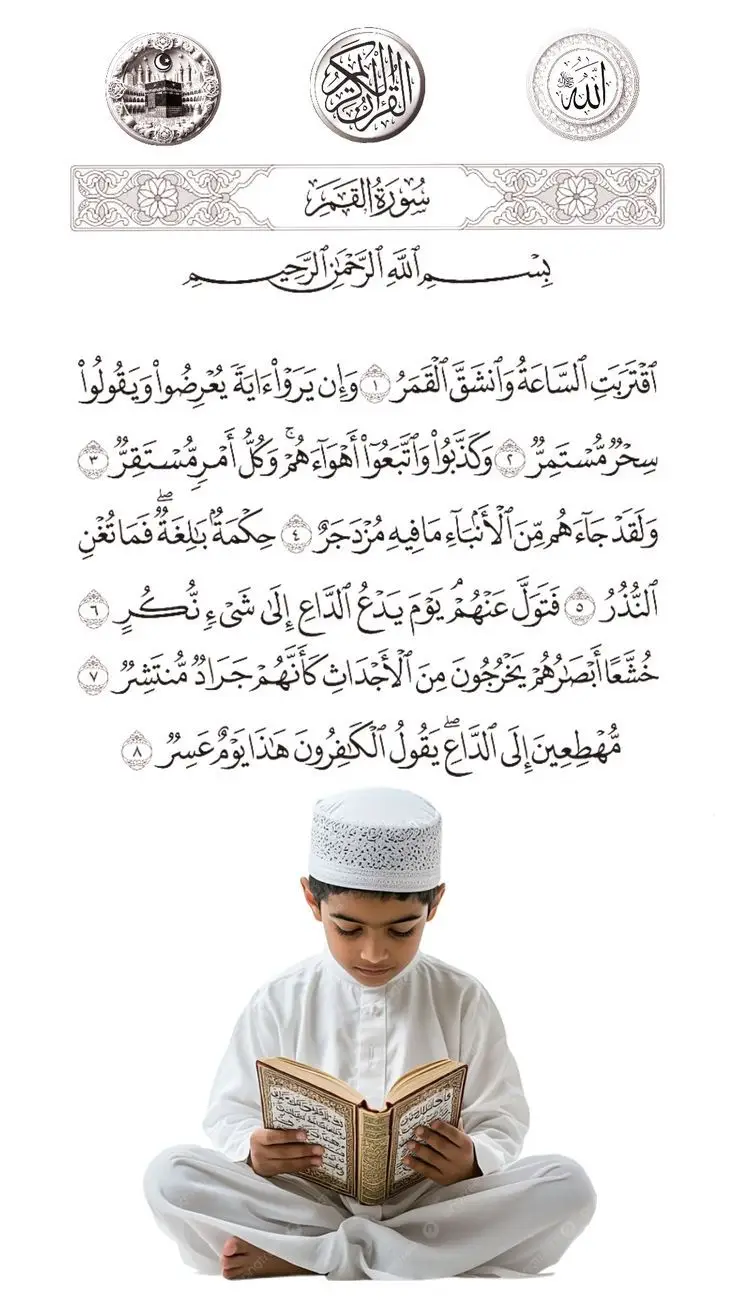 القرآن الكريم
الله
سُورَةُ القَمَرِ
بِسْمِ ٱللَّهِ ٱلرَّحْمَٰنِ ٱلرَّحِيمِ
ٱقْتَرَبَتِ ٱلسَّاعَةُ وَٱنشَقَّ ٱلْقَمَرُ ١ وَإِن يَرَوْا۟ ءَايَةً يُعْرِضُوا۟ وَيَقُولُوا۟
سِحْرٌ مُّسْتَمِرٌّ ٢ وَكَذَّبُوا۟ وَٱتَّبَعُوٓا۟ أَهْوَآءَهُمْ ۚ وَكُلُّ أَمْرٍ مُّسْتَقِرٌّ ٣
وَلَقَدْ جَآءَهُم مِّنَ ٱلْأَنۢبَآءِ مَا فِيهِ مُزْدَجَرٌ ٤ حِكْمَةٌۢ بَٰلِغَةٌ ۖ فَمَا تُغْنِ
ٱلنُّذُرُ ٥ فَتَوَلَّ عَنْهُمْ ۘ يَوْمَ يَدْعُ ٱلدَّاعِ إِلَىٰ شَىْءٍ نُّكُرٍ ٦
خُشَّعًا أَبْصَٰرُهُمْ يَخْرُجُونَ مِنَ ٱلْأَجْدَاثِ كَأَنَّهُمْ جَرَادٌ مُّنتَشِرٌ ٧
مُّهْطِعِينَ إِلَى ٱلدَّاعِ ۖ يَقُولُ ٱلْكَٰفِرُونَ هَٰذَا يَوْمٌ عَسِرٌ ٨